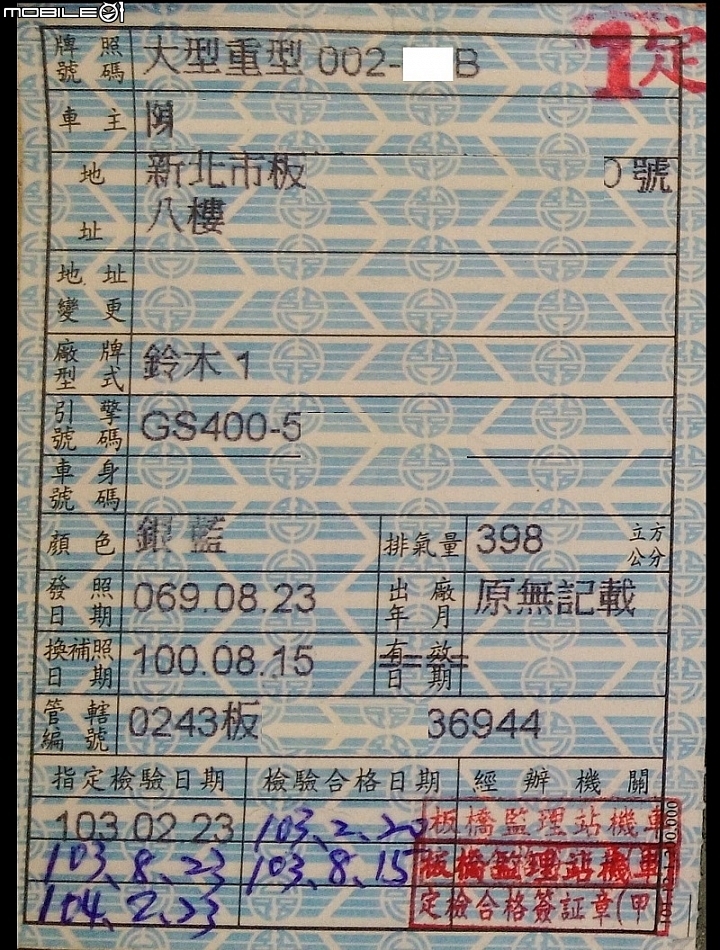 MOBILE01
1定
牌照號碼 大型重型 002- B
車主 陳
地址 新北市板 0號
八樓
地址變更
廠牌型式 鈴木 1
引擎號碼 GS400-5
車身號碼
顏色 銀藍 排氣量 398 立方公分
發照日期 069.08.23 出廠年月 原無記載
換補照日期 100.08.15 有效日期 ====
管轄編號 0243板 36944
指定檢驗日期 檢驗合格日期 經辦機關
103.02.23 103、2、20 板橋監理站機車
103、8、23 103、8、15 板橋監理站機車
104、2、23 定檢合格簽証章(甲